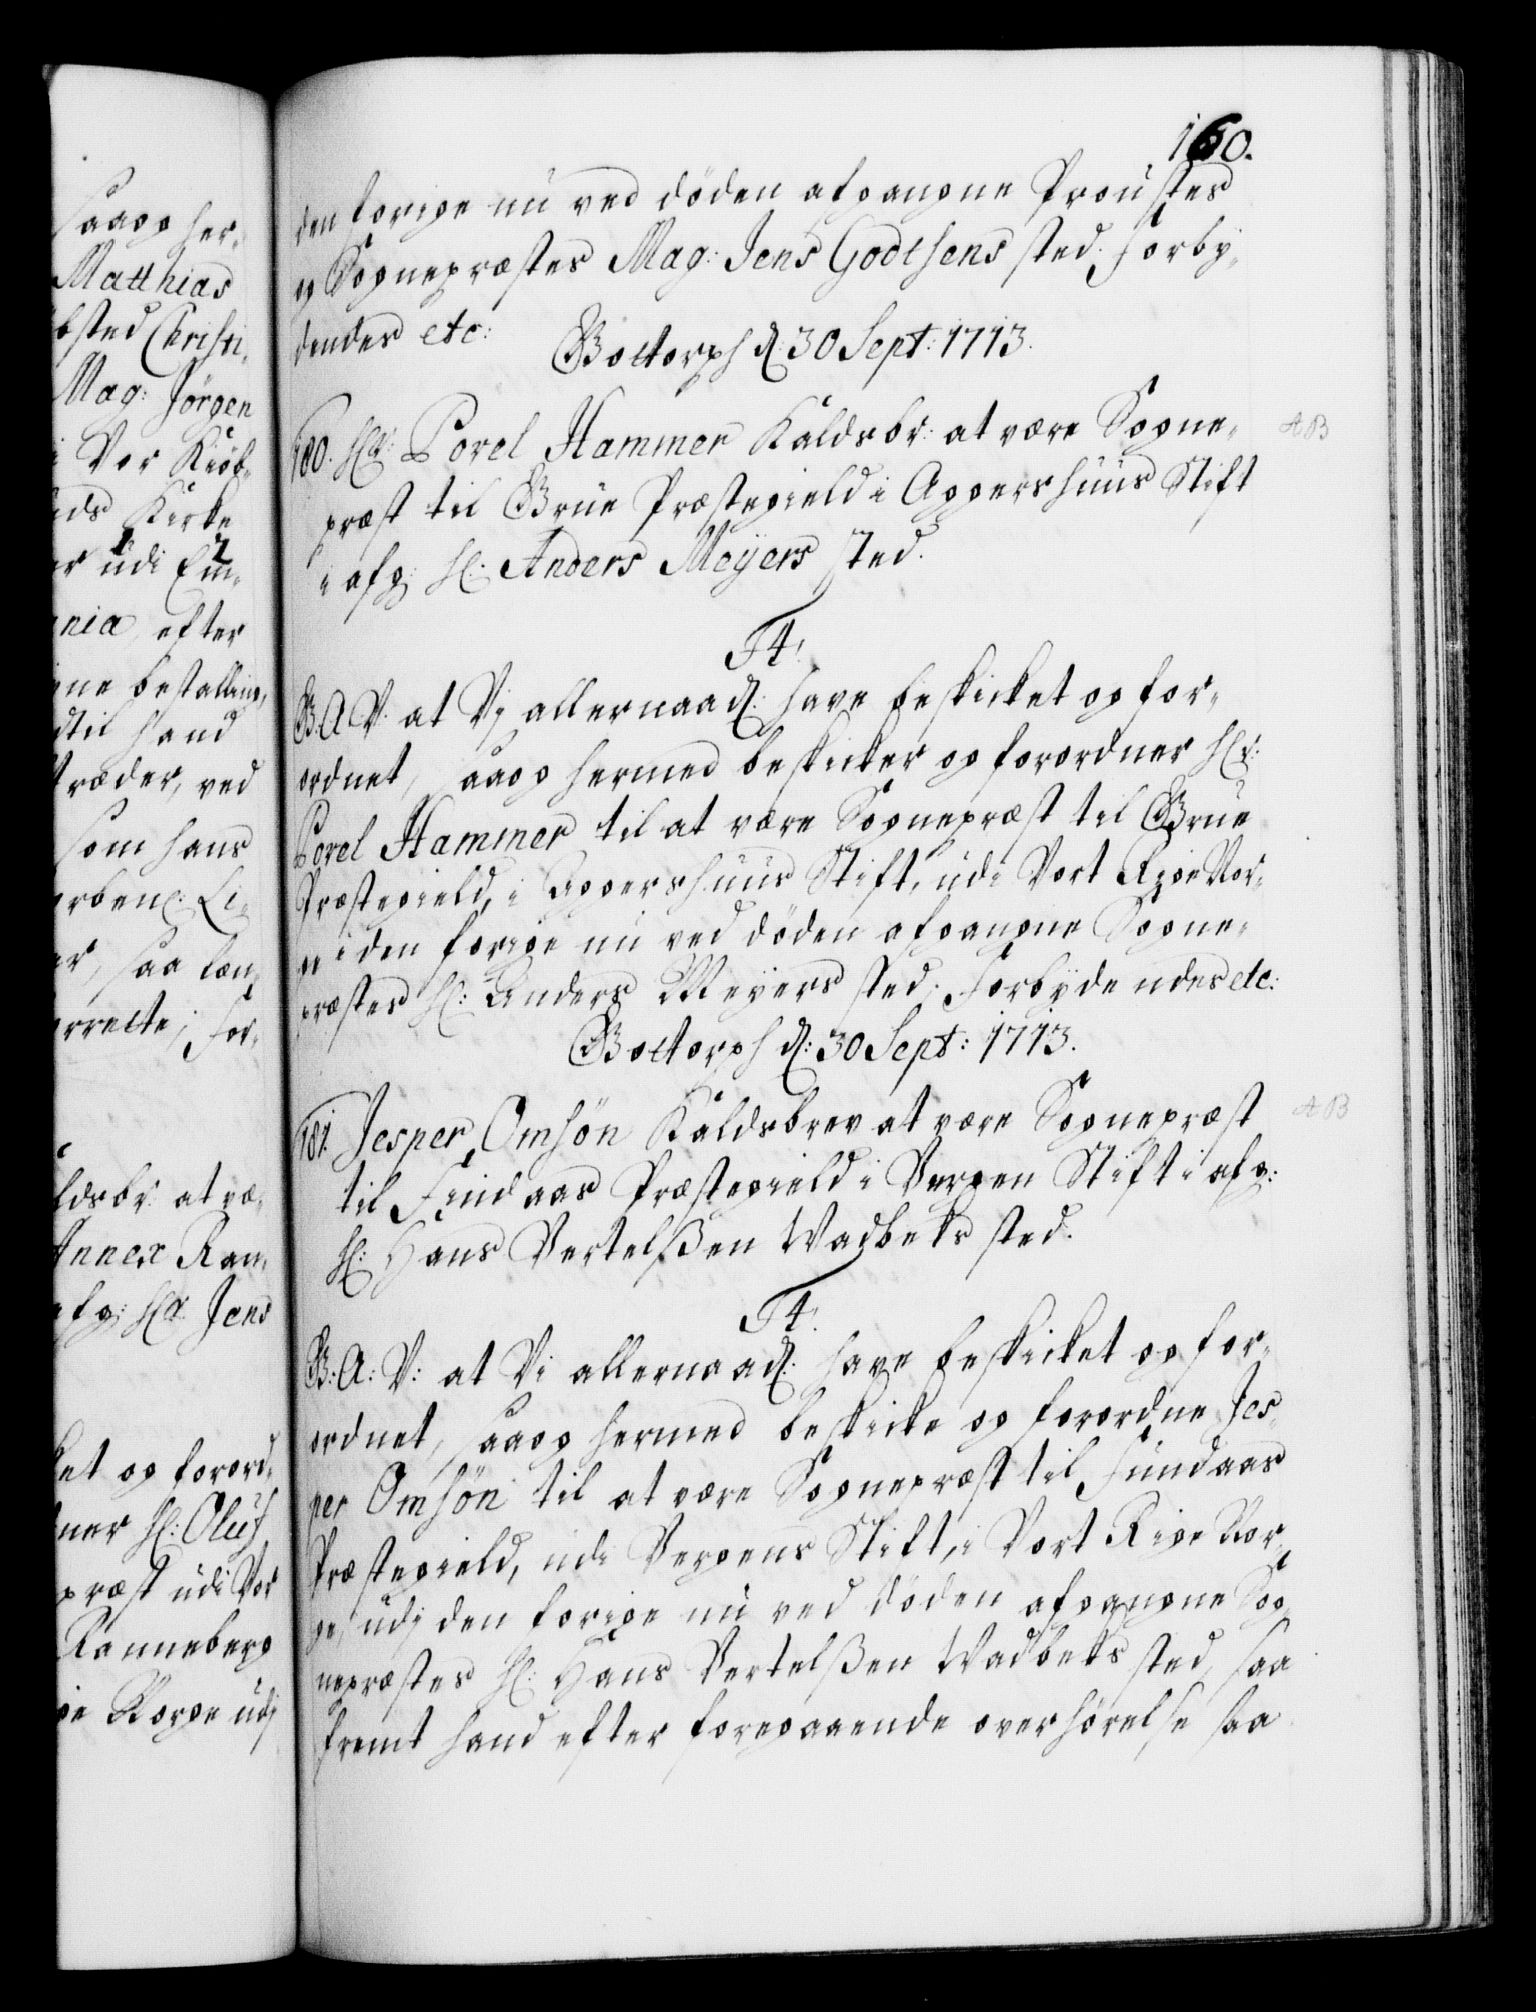 160.
den forige nu ved döden afgangne Proustes
og Sognepræstes Mag: Jens Godtsens sted. Forby-
dendes etc: Gottorph d. 30 Sept: 1713.
180. Hr: Povel Hammer Kaldsbr: at være Sogne-
præst til Grue Præstegield i Aggershuus Stift
i afg: Hr: Anders Meÿers sted.
F4.
G. A. V. at Vj allernaad: have beskicket og for-
ordnet, saaog hermed beskicker og forordner Hr:
Povel Hammer til at være Sognepræst til Grue
Præstegield, i Aggershuus Stift, udi Vort Rige Nor-
ge i den forige nu ved döden afgangne Sogne-
præstes Hr: Anders Meyers sted; Forbydendes etc:
Gottorph d: 30 Sept: 1713.
181. Jesper Omsön Kaldsbrev at være Sognepræst
til Findaas Præstegield i Bergen Stift i afg:
Hr: Hans Bertelßen Wadbeks sted.
F4.
G: A: V: at Vi allernaad: have beskicket og for-
ordnet, saaog hermed beskicke og forordne Jes-
per Omsön til at være Sognepræst til Fundaas
Præstegield, udi Bergens Stift, i Vort Rige Nor-
ge, udj den forige nu ved döden afgangne Sog-
nepræstes Hr: Hans Bertelßen Wadbeks sted, saa
fremt hand efter foregaaende overhörelse saa
AB
AB
saaog her-
Matthias
Christi-
Mag: Jörgen
i Vor Kiöb-
Kirke
udi
efter
bestalling,
hand
træder, ved
som hans
saa læn-
For-
Kaldsbr: at væ-
Annex Ran-
afg: Hr: Jens
og forord-
Hr: Oluf
præst udi Vor
Ranneberg
Norge udj